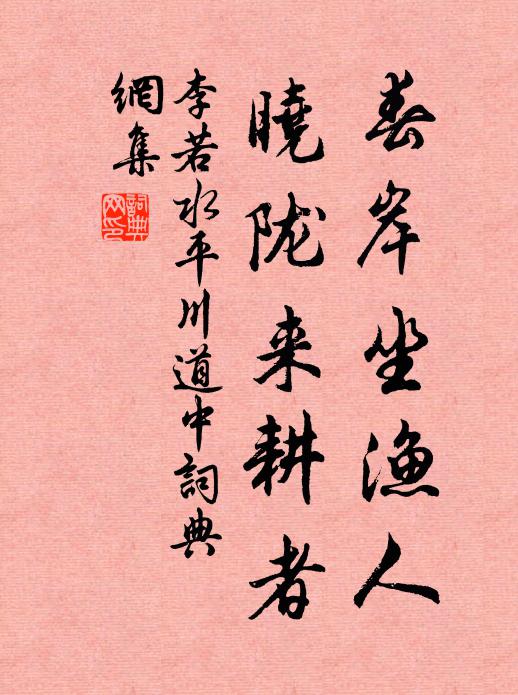 春岸坐渔人
晓陇来耕者
李若水平川道中詞典
網集
詞典
网印